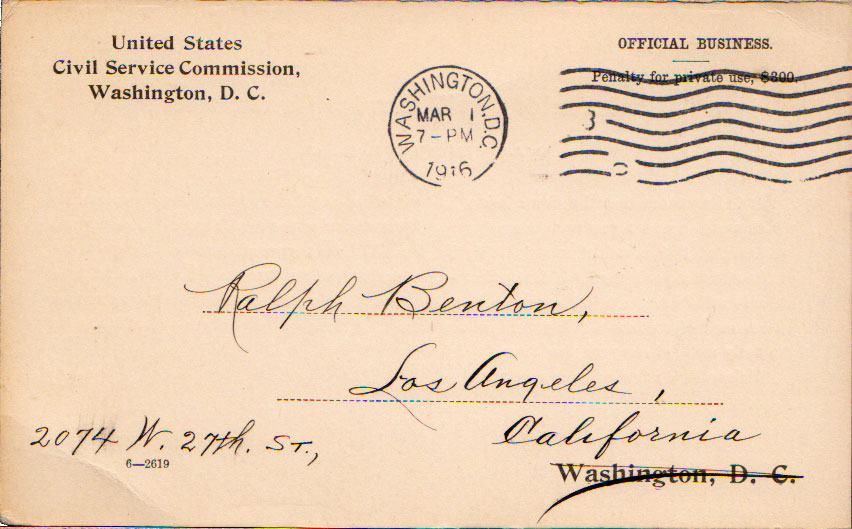 United States
Civil Service Commission,
Washington, D. C.
OFFICIAL BUSINESS.
Penalty for private use, $300.
WASHINGTON, D.C.
MAR 1
7-PM
1916
3
Ralph Benton,
Los Angeles,
California
2074 W. 27th. St.,
6—2619
Washington, D. C.